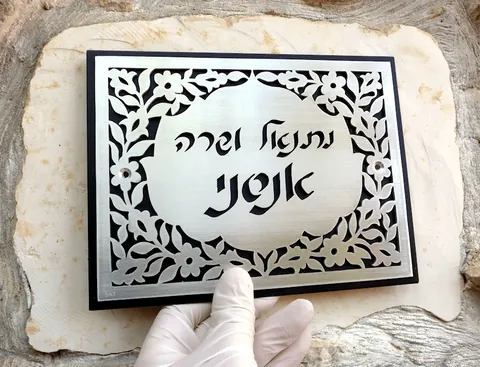 נתנאל ושרה
אנסני